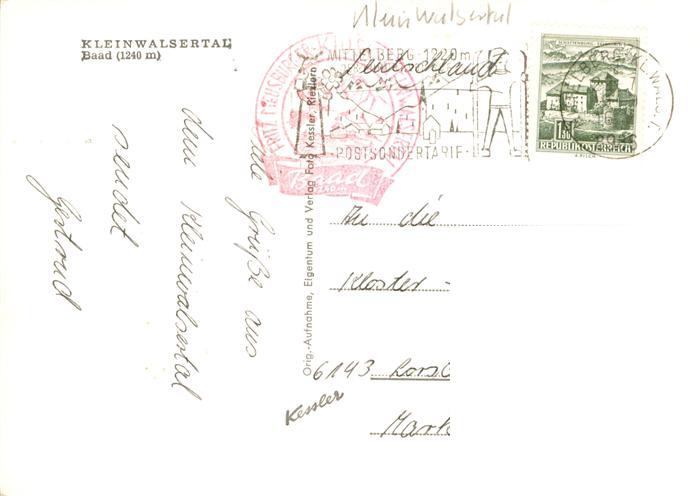 Kleinwalsertal
KLEINWALSERTAL
Baad (1240 m)
MITTELBERG 1220m
Deutschland
POSTSONDERTARIF
Baad
1.50
REPUBLIK ÖSTERREICH
Grüße aus
dem Kleinwalsertal
sendet
Gertrud
Orig.-Aufnahme, Eigentum und Verlag Foto Kessler, Riezlern
An die
Kloster-
6143
Kessler